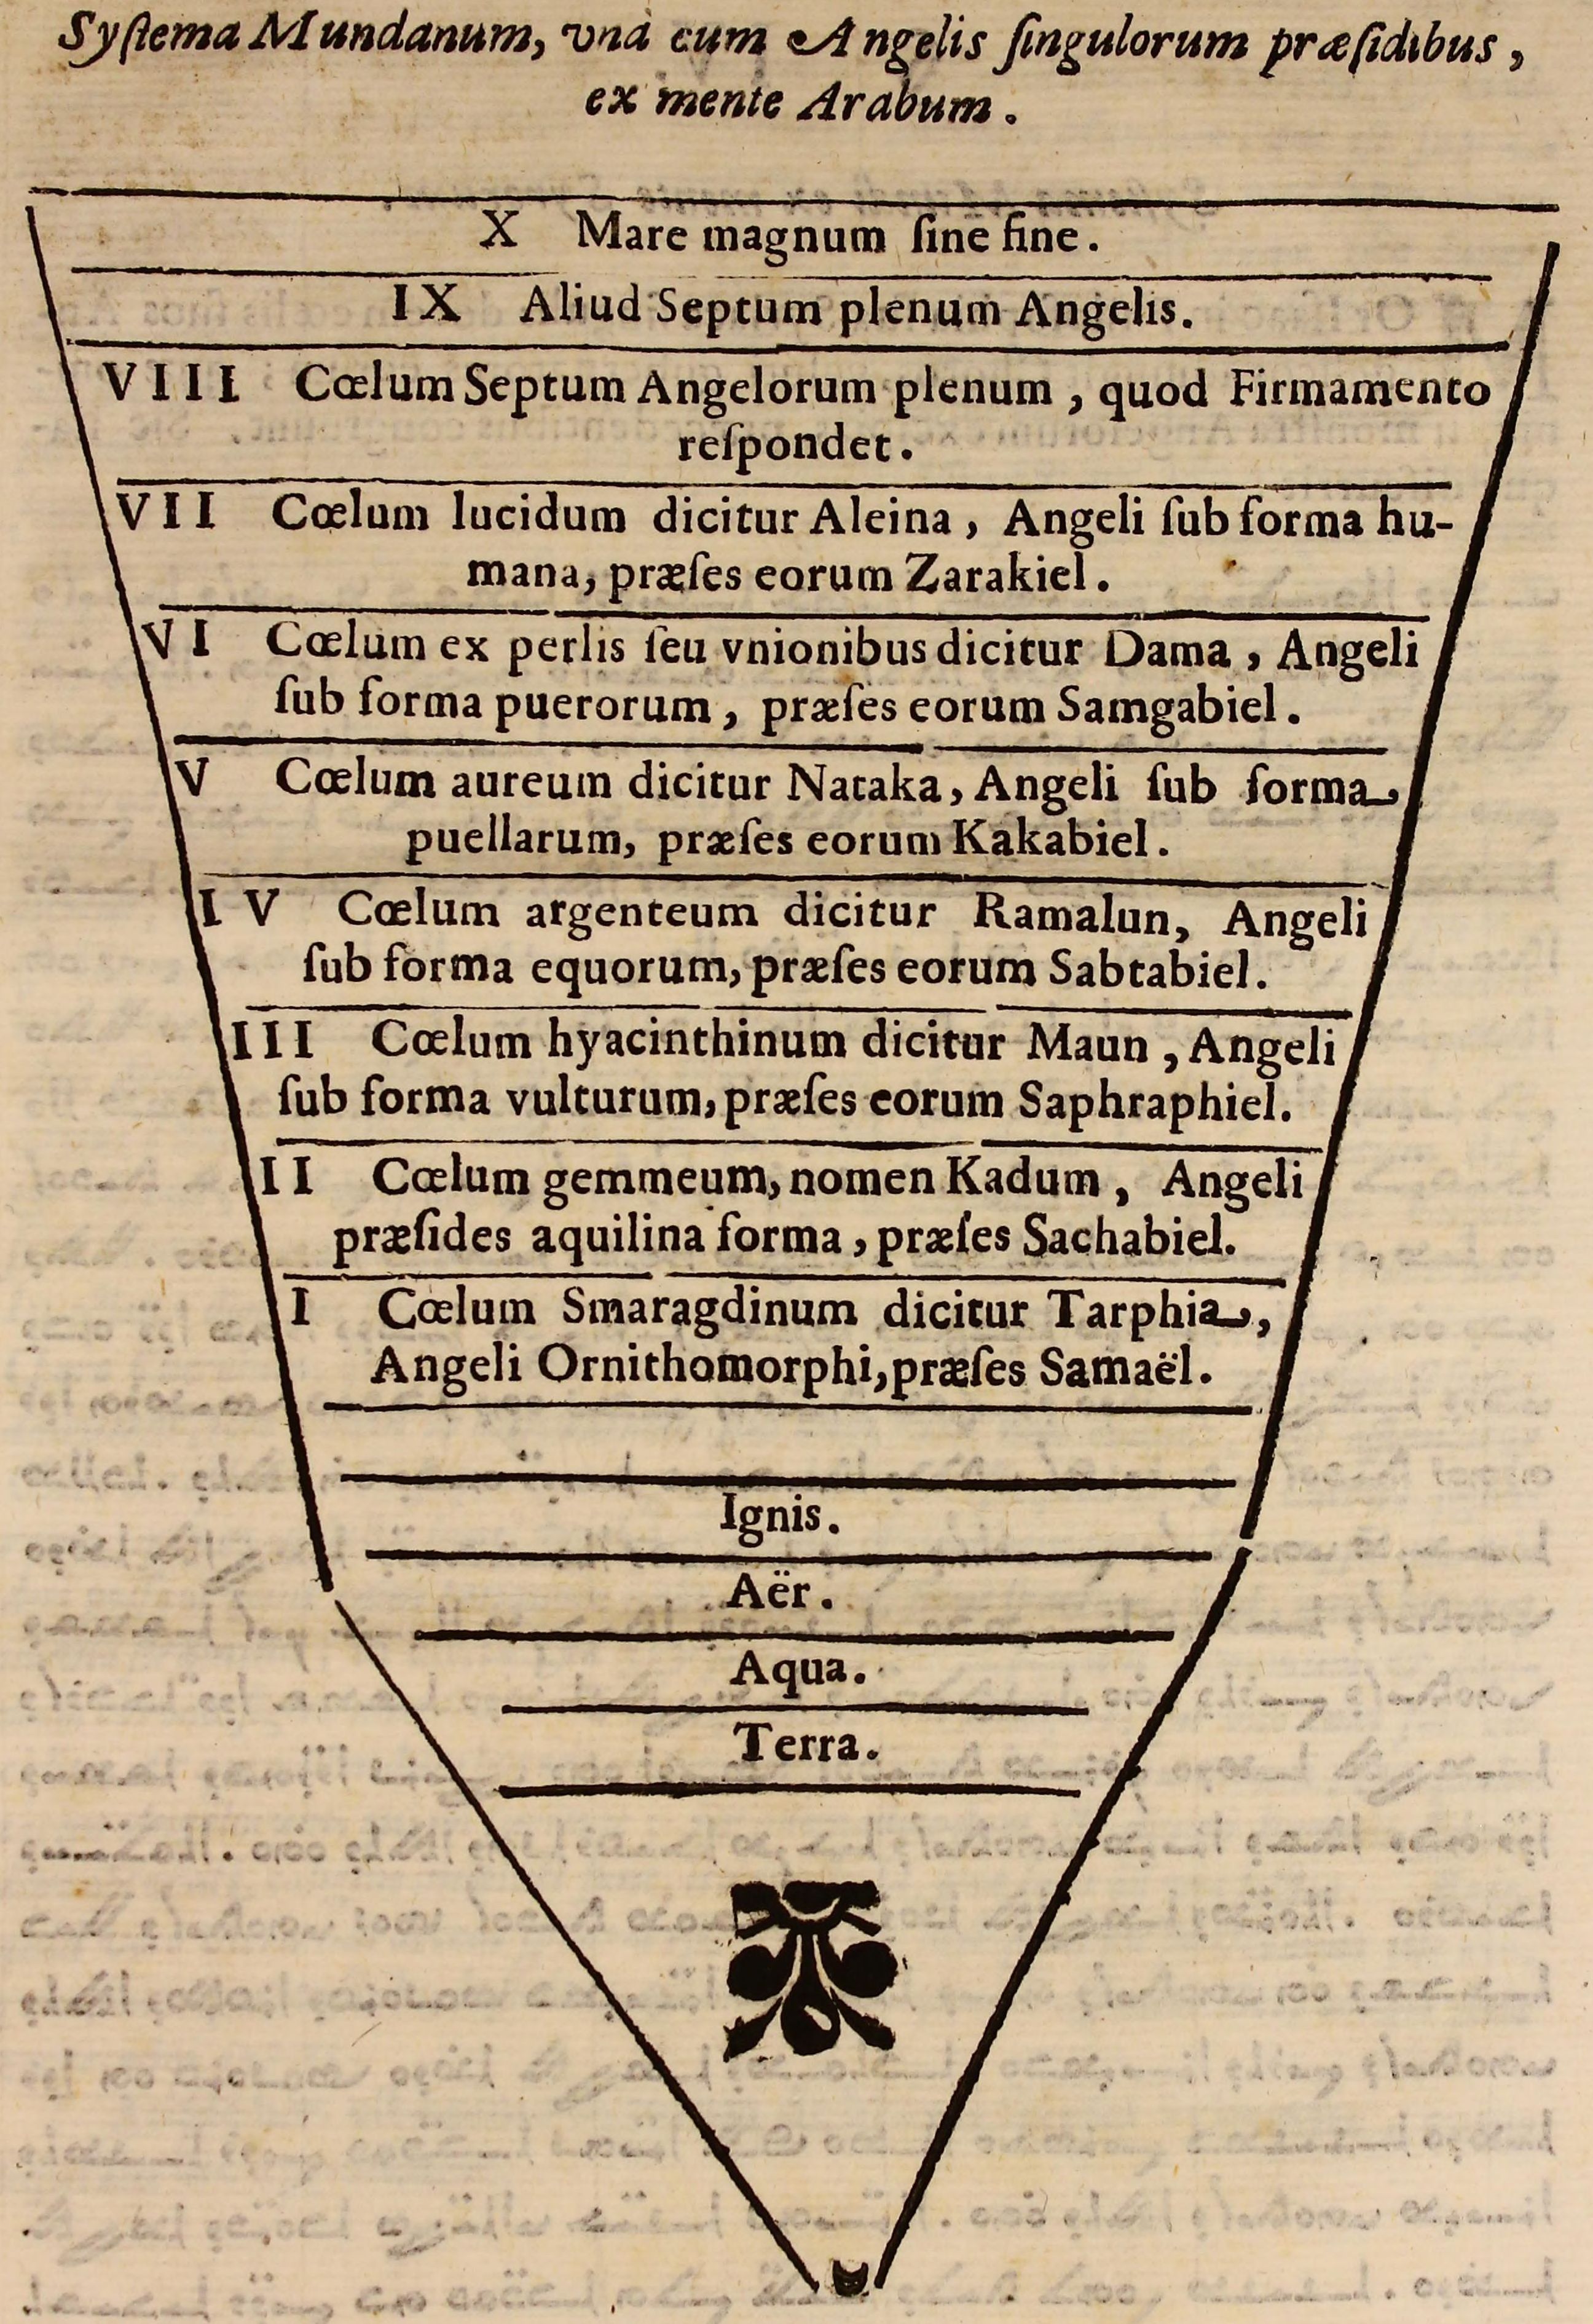 Syſtema Mundanum, vnà cum Angelis ſingulorum præſidibus,
ex mente Arabum.
X Mare magnum ſine fine.
IX Aliud Septum plenum Angelis.
VIII Cœlum Septum Angelorum plenum, quod Firmamento
reſpondet.
VII Cœlum lucidum dicitur Aleina, Angeli ſub forma hu-
mana, præſes eorum Zarakiel.
VI Cœlum ex perlis ſeu vnionibus dicitur Dama, Angeli
ſub forma puerorum, præſes eorum Samgabiel.
V Cœlum aureum dicitur Nataka, Angeli ſub forma
puellarum, præſes eorum Kakabiel.
IV Cœlum argenteum dicitur Ramalun, Angeli
ſub forma equorum, præſes eorum Sabtabiel.
III Cœlum hyacinthinum dicitur Maun, Angeli
ſub forma vulturum, præſes eorum Saphraphiel.
II Cœlum gemmeum, nomen Kadum, Angeli
præſides aquilina forma, præſes Sachabiel.
I Cœlum Smaragdinum dicitur Tarphia,
Angeli Ornithomorphi, præſes Samaël.
Ignis.
Aër.
Aqua.
Terra.